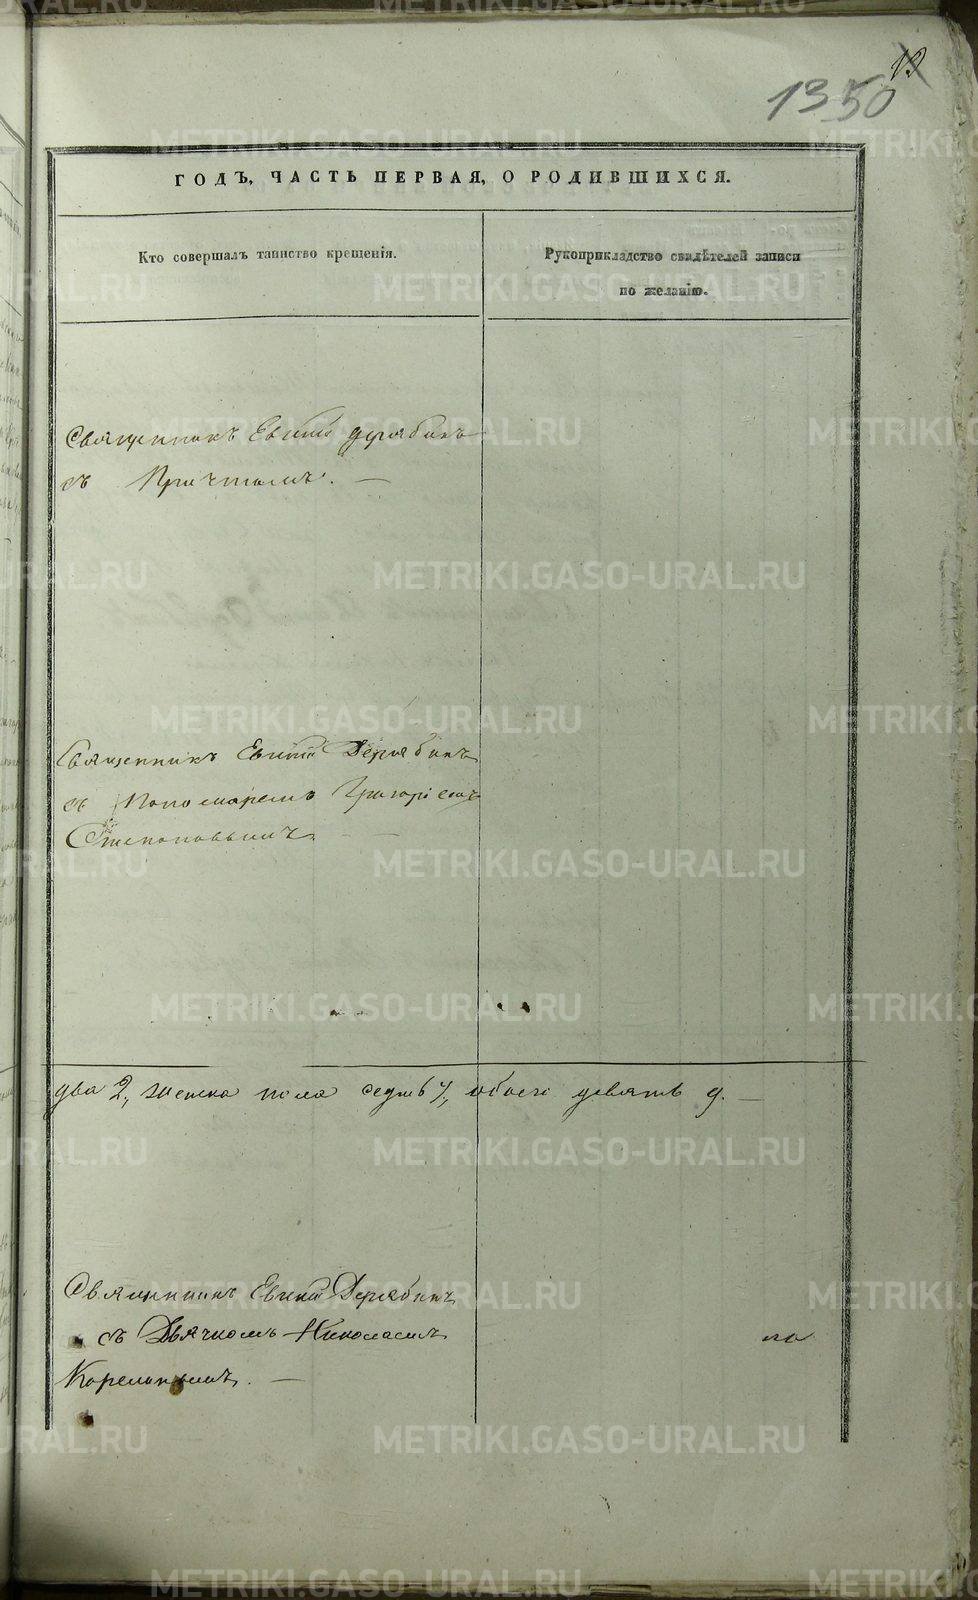 13
1350
ГОДЪ, ЧАСТЬ ПЕРВАЯ, О РОДИВШИХСЯ.
Кто совершалъ таинство крещенія.
Рукоприкладство свидѣтелей записи
по желанію.
Священникъ Евѳимій Дерябинъ
съ Причтомъ. —
Священникъ Евѳимій Дерябинъ
съ Пономаремъ Григоріемъ
Степановымъ. —
два 2, женска пола седмь 7, обоего девять 9. —
Священникъ Евѳимій Дерябинъ
съ Дьячкомъ Николаемъ
на
METRIKI.GASO-URAL.RU